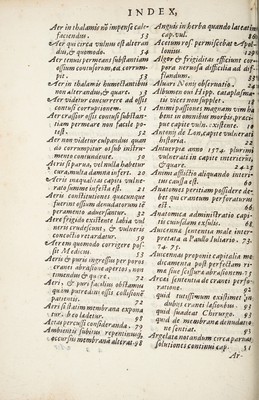 INDEX,
Aer in thalamis nō impense cale-
faciendus. 53
Aer qui circa vulnus est alteran
dus, & quomodo. 54
Aer tenuis permeans substantiam
ossium contusorum, ea corrum-
pit. 53
Aer in thalamis humectantibus
non alterandus, & quare. 54
Aer videtur concurrere ad ossis
contusi corruptionem. 52
Aer crassior ossis contusi substan-
tiam permeare non facile po-
test. 53
Aer non videtur culpandus quan
do corrumpitur os sub instru-
mento contundente. 50
Aeri si parua, vel multa habetur
cura, multa damna infert. 23
Aeris inaequalitas capitis vulne-
ratis summe infesta est. 21
Aeris constitutiones quaecunque
fuerint ossium denudatorum tē
peramento aduersantur. 32
Aere frigido existente labia vul
neris crudescunt, & vulneris
concoctio retardatur. 59
Aerem quomodo corrigere pos-
sit Medicus. 53
Aeris & puris ingressus per poros
cranei abrasione apertos, non
timendus & quare. 72
Aeri, & puri facilius obstamus
quàm putredini ossis collisione
patientis.
Aeri si statim membrana expona
tur. ea laedetur. 98
Actas percussi consideranda. 79
Ambientis subitus repentinusq́;
occursus membranā alterat. 98
Anguis in herba quando lateat in
cap. vul. 86
Acetum ros. permiscebat Apol-
lonius. 129
Algor, & frigiditas efficiunt cor-
pora neruosa difficilia ad dif-
fundendum.
Altheus Nonij obseruatio. 2
Albumen oui iij pp. cataplasma-
tis vicem supplet. 18
Animi passiones magnam vim ha
bent in omnibus morbis, praeci
pue capite vuln. existente. 60
Antonij de Lon. capite vulnerati
historia. 22
Antuerpiae anno 1574. plurimi
vulnerati in capite interierūt,
& quare. 24
Animi afflictio aliquando interi-
tus causa est. 60
Anatomes peritiam possidere de-
bet qui cranetum perforaturus
est. 66
Anatomica administratio capi-
tis cuiusdam exsilis. 68
Auicennae sententia male inter
pretata a Paullo Iuliario. 73.
74. 75.
Auicennas proponit capitalia me
dicamenta post perfectam ri-
mae siue fissurae abrasionem. 75
eiusd. sententia de cranei perfo-
ratione. 92
quid tutissimum existimet in
dubijs cranei laesionibus. 93
quid suadeat Chirurgo. 93
quid de membrana denudatio-
ne sentiat. 93
Argelata notandum circa paruas
solutiones continui cap. 51
Ar-